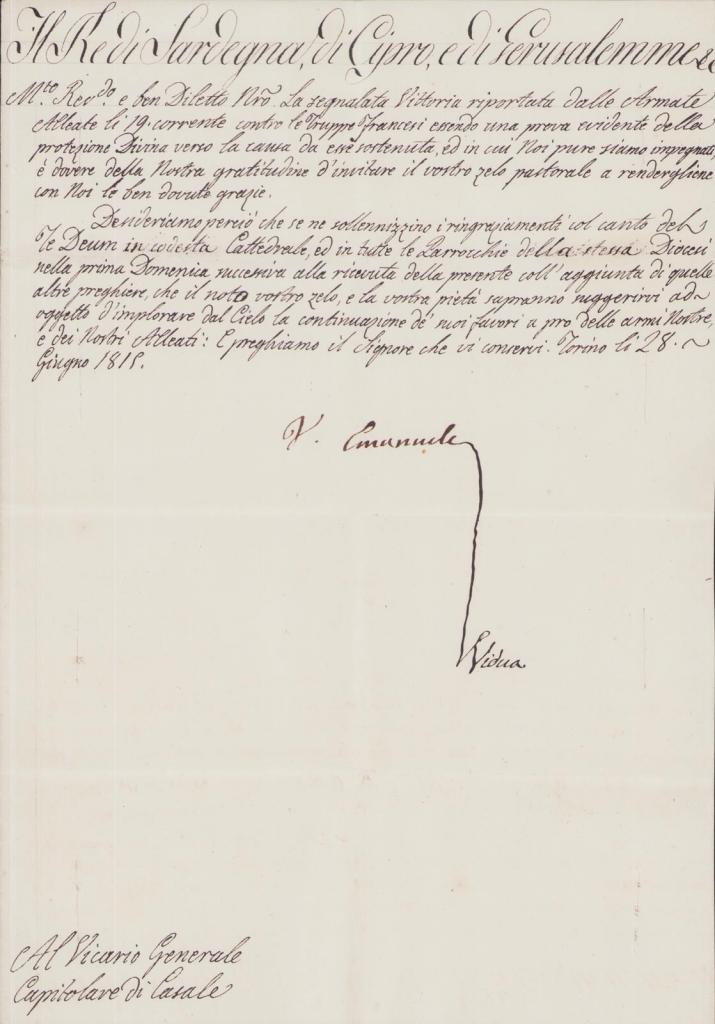 Il Re di Sardegna, di Cipro, e di Gerusalemme &c
M.to Rev.do e ben Diletto Nrõ. La segnalata Vittoria riportata dalle Armate
Alleate li 19. corrente contro le Truppe Francesi essendo una prova evidente della
protezione Divina verso la causa da esse sostenuta, ed in cui Noi pure siamo impegnati,
è dovere della Nostra gratitudine d'invitare il vostro zelo pastorale a rendergliene
con Noi le ben dovute grazie.
Desideriamo perciò che se ne sollennizzino i ringraziamenti col canto del
Te Deum in codesta Cattedrale, ed in tutte le Parrocchie della stessa Diocesi
nella prima Domenica successiva alla ricevuta della presente coll'aggiunta di quelle
altre preghiere, che il noto vostro zelo, e la vostra pietà sapranno suggerirvi ad
oggetto d'implorare dal Cielo la continuazione de' suoi favori a pro delle armi Nostre,
e dei Nostri Alleati: E preghiamo il Signore che vi conservi. Torino li 28.
Giugno 1815.
V. Emanuele
Vidua
Al Vicario Generale
Capitolare di Casale